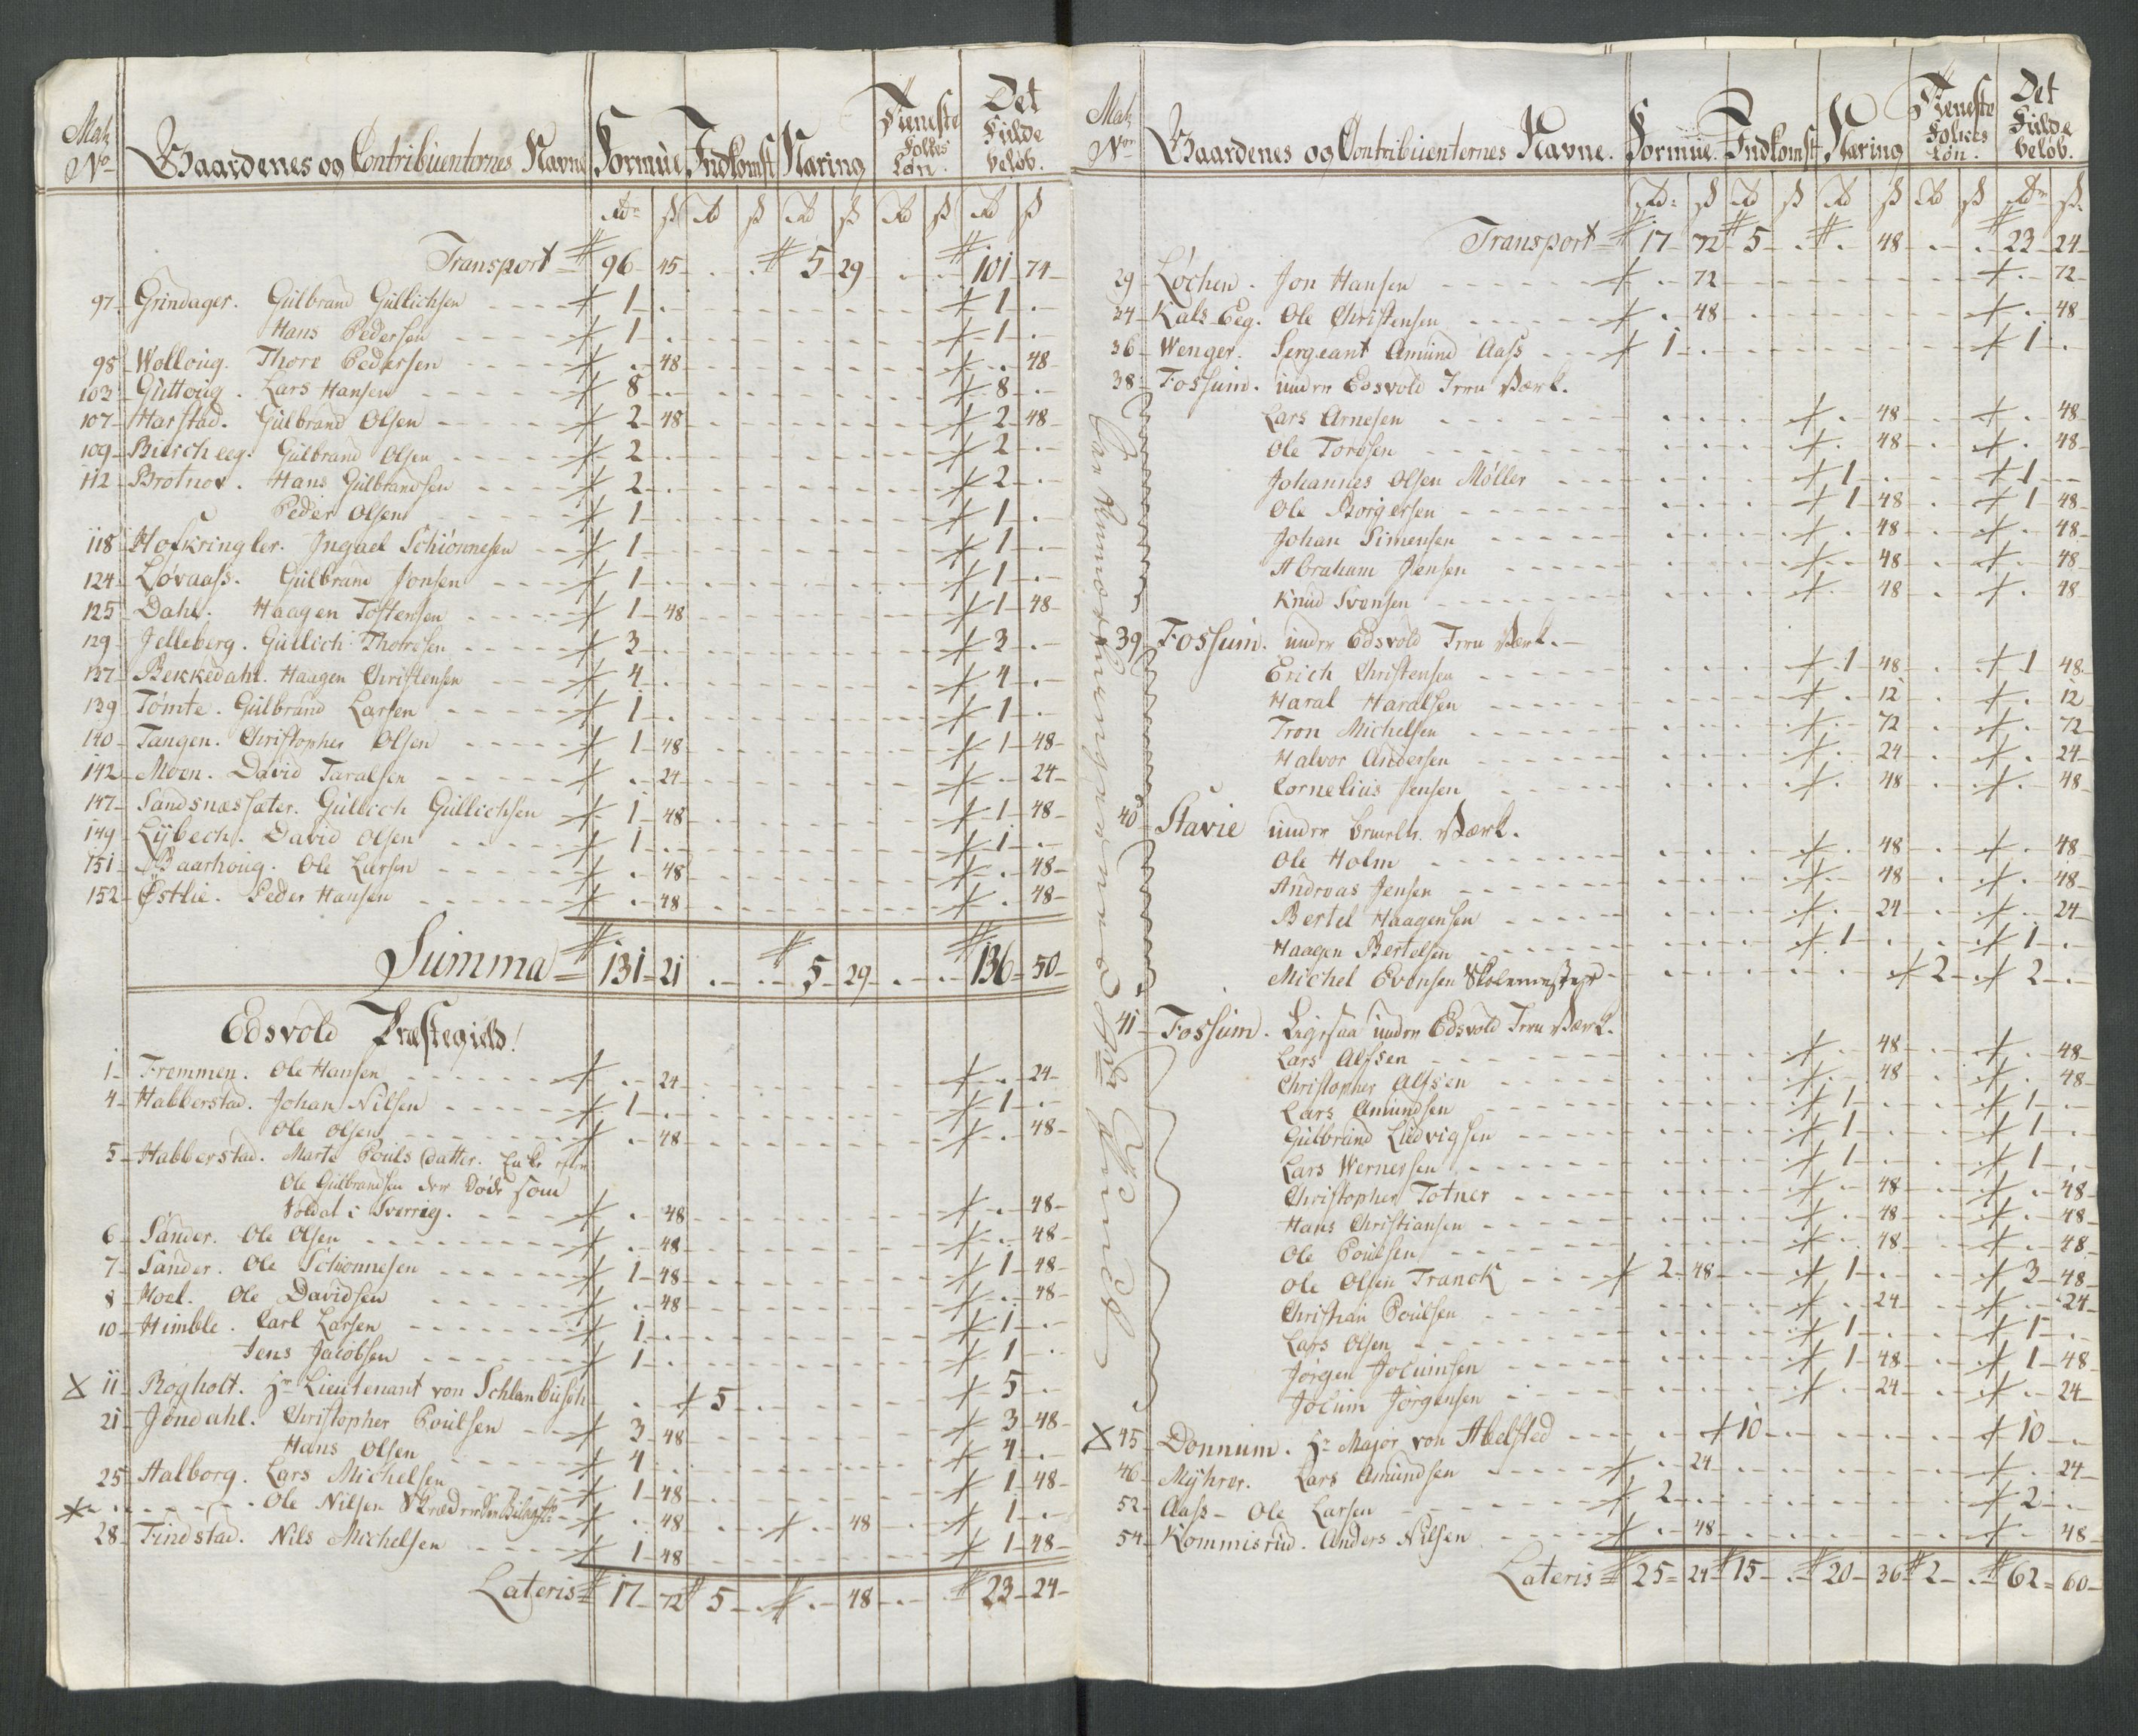 Mat, No Gaardenes og Contribuenternes Navne Formue Indkomst Næring Tieneste Folkes Løn. Det Fulde Beløb.
Rdr ß Rd ß Rd ß Rd ß Rd ß
Transport = 96 45 . . 5 29 . . 101 74
97 Grindager. Gulbrand Gullichsen 1 . 1 .
Hans Pedersen 1 . 1 .
98 Wolloug. Thore Pedersen . 48 . 48
103 Guttoug. Lars Hansen 8 . 8 .
107 Harstad. Gulbrand Olsen 2 48 2 48
109 Birscheeg. Gulbrand Olsen 2 . 2 .
112 Brotnov. Hans Gulbrandsen 2 . 2 .
Peder Olsen 1 . 1 .
118 Hofkringler. Ingael Schiønnesen 1 . 1 .
124 Løvaass. Gulbrand Jonsen 1 . 1 .
125 Dahl. Haagen Tostensen 1 48 1 48
129 Jelleberg. Gullich Thoresen 3 . 3 .
137 Bekkedahl. Haagen Christensen 4 . 4 .
139 Tømte. Gulbrand Larsen 1 . 1 .
140 Tangen. Christopher Olsen 1 48 1 48
142 Moen. David Taralsen . 24 . 24
147 Sandsnæssæter. Gullich Gullichsen 1 48 1 48
149 Lybech. David Olsen 1 . 1 .
151 Baarhoug. Ole Larsen . 48 . 48
152 Østlie. Peder Hansen . 48 . 48
Summa = 131 21 . . 5 29 . . 136 50
Edsvold Præstegield!
1 Fremmen. Ole Hansen . 24 . 24
4 Habberstad. Johan Nilsen 1 . 1 .
Ole Olsen . 48 . 48
5 Habberstad. Marte Pouls Datter. Enke efter
Ole Gulbrandsen der Døde som
Soldat i Sverrig. . 48 . 48
6 Sander. Ole Olsen . 48 . 48
7 Sander. Ole Schiønnesen 1 48 1 48
8 Hoel. Ole Davidsen . 48 . 48
10 Himble. Carl Larsen 1 . 1 .
Jens Jacobsen 1 . 1 .
X 11 Rogholt. Hr Lieutenant von Schlanbusch 5 5 .
21 Jøndahl. Christopher Poulsen 3 48 3 48
Hans Olsen 4 . 4 .
25 Halborg. Lars Michelsen 1 48 1 48
Ole Nilsen . 48 . 48 1 .
28 Findstad. Nils Michelsen 1 48 1 48
Lateris = 17 72 5 . . 48 . . 23 24
Mat, Nr Gaardenes og Contribuenternes Navne. Formue. Indkomst Næring Tieneste Folkes Løn. Det Fulde Beløb.
Rd: ß Rd ß Rd ß Rd ß Rdr ß
Transport = 17 72 5 . . 48 . . 23 24
29 Løchen. Jon Hansen . 72 . 72
34 Kals Eeg. Ole Christensen . 48 . 48
36 Wenger. Sergeant Amund Aass 1 . 1 .
38 Fossum. under Edsvold Jern Værk.
Lars Arnesen . 48 . 48
Ole Tordsen . 48 . 48
Johannes Olsen Møller 1 . 1 .
Ole Borgersen 1 48 1 48
Johan Simensen . 48 . 48
Abraham Jensen . 48 . 48
Knud Svensen . 48 . 48
39 Fossum. under Edsvold Jern Værk.
Erich Christensen 1 48 1 48
Haral Haralsen . 12 . 12
Tron Michelsen . 72 . 72
Halvor Andersen . 24 . 24
Cornelius Jensen . 48 . 48
40 Stavie under Værk.
Ole Holm . 48 . 48
Andreas Jensen . 48 . 48
Bertel Haagensen . 24 . 24
Haagen Bertelsen 1 . 1 .
Michel Evensen Skolemester 2 2 .
41 Fossum. Ligesaa under Edsvold Jern Værk.
Lars Alfsen . 48 . 48
Christopher Alfsen . 48 . 48
Lars Amundsen 1 . 1 .
Gulbrand Ludvigsen 1 . 1 .
Lars Wernersen 1 . 1 .
Christopher Totner . 48 . 48
Hans Christiansen . 48 . 48
Ole Poulsen . 48 . 48
Ole Olsen Tranck 2 48 1 . 3 48
Christian Poulsen . 24 . 24
Lars Olsen 1 . 1 .
Jørgen Jocumsen 1 48 1 48
Jocum Jørgensen . 24 . 24
X 45 Donnum. Hr Major von Abelsted 10 10 .
46 Myhrer. Lars Amundsen . 24 . 24
52 Aass Ole Larsen 2 . 2 .
54 Kommisrud. Anders Nilsen . 48 . 48
Lateris = 25 24 15 . 20 36 2 . 62 60